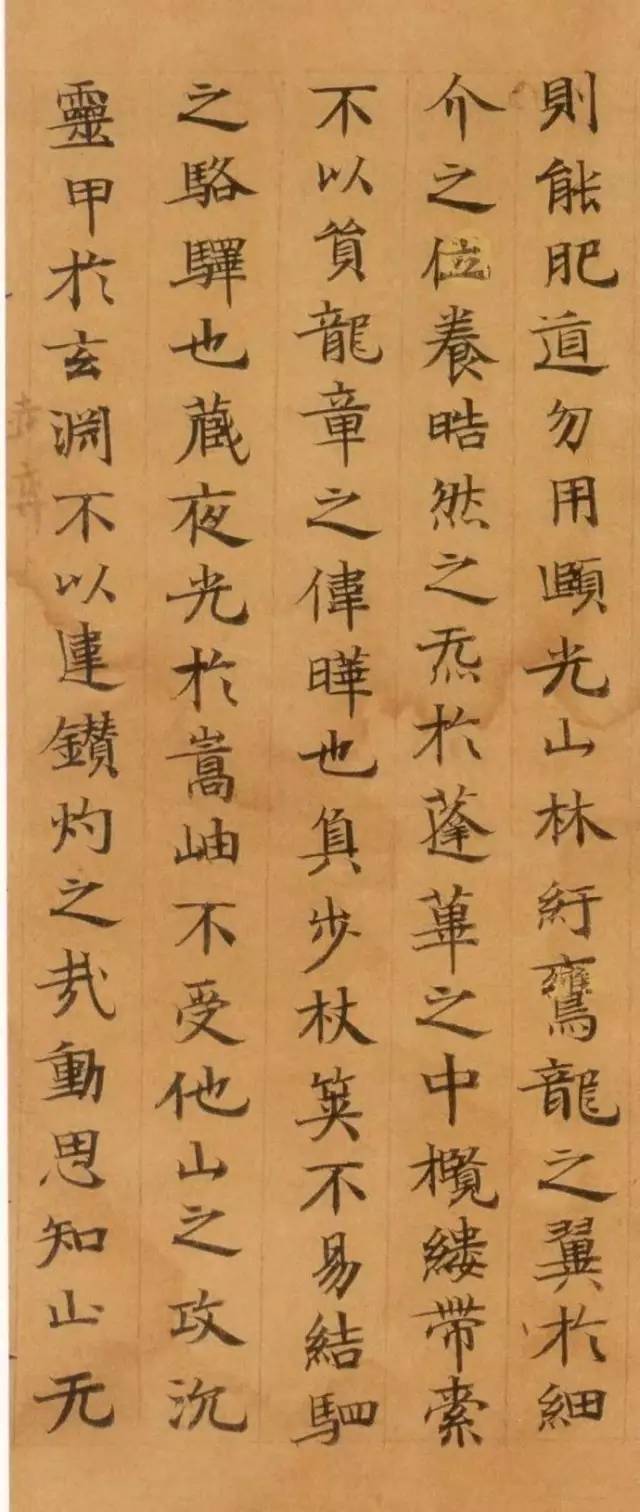 則能肥遁勿用頤光山林紆鸞龍之翼於細
介之位養晧然之炁於蓬蓽之中欖縷帶索
不以貿龍章之偉曄也負步杖筴不易結駟
之駱驛也藏夜光於嵩岫不受他山之攻沉
靈甲於玄淵不以違鑽灼之烖動思知止无